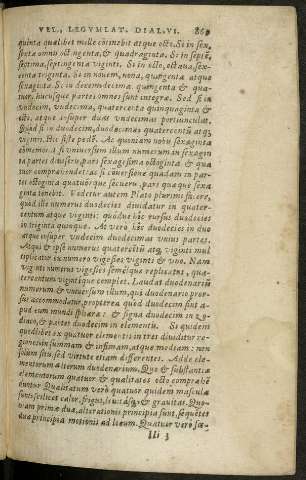 VEL, LEGVMLAT. DIAL.VI. 869
quinta quælibet mille continebit atque octo. Si in sex,
sexta omnis octingenta, & quadraginta. Si in septē,
septima, septingenta viginti. Si in octo, octaua, sex-
centa triginta. Si in nouem, nona, quingenta atque
sexaginta. Si in decem: decima, quingenta & qua-
tuor. hucusque partes omnes sunt integræ. Sed si in
vndecim, vndecima, quatercenta quinquaginta &
octo, atque insuper duæ vndecimæ portiunculæ.
Quòd si in duodecim, duodecima: quatercentū atq;
viginti. Hic siste pedē. Ac quoniam nobis sexaginta
in sexagen
ta partes diuiseris, pars sexagesima octoginta & qua
tuor comprahendet: ac si conuersione quadam in par-
tes octoginta quatuor que secueris, pars quæque sexa
ginta tenebit. Videtur autem Plato plurimi facere,
quòd ille numerus duodecies diuidatur in quater-
centum atque viginti: quodue hic rursus duodecies
in triginta quinque. At verò hic duodecies in duo
atque insuper vndecim duodecimas vnius partes.
Atqui & ipse numerus quatercentū atq; viginti mul
tiplicatur ex numero vigesies viginti & vno. Nam
viginti numerus vigesies semelque replicatus, qua-
tercentum viginti que complet. Laudat duodenariū
numerum & vniuersum illum, qui duodenario pror-
sus accommodatur, propterea quòd duodecim sunt a-
pud eum mundi sphæræ: & signa duodecim in zo-
diaco, & partes duodecim in elementis. Si quidem
quodlibet ex quatuor elementis in tres diuiditur re-
giones: in summam & infimam, atque mediam: non
solùm situ, sed virtute etiam differentes. Adde ele-
mentorum alterum duodenarium. Quo & substantiæ
elementorum quatuor & qualitates octo comprahē
duntur. Qualitatum verò quatuor quidem masculæ
sunt: scilicet calor, frigus, leuitasq; & grauitas. Quo-
niam primæ duæ, alterationis principia sunt, sequētes
duæ principia motionis ad locum. Quatuor verò fœ-
IIi 3